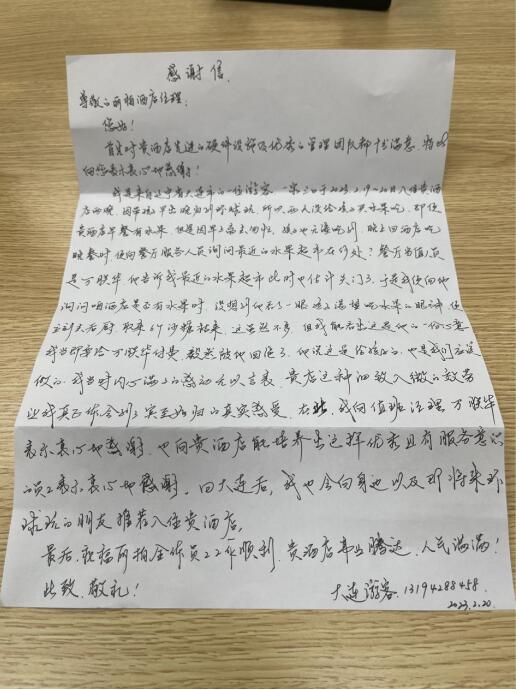 感谢信
尊敬的 酒店经理:
您好!
首先对贵酒店先进的硬件设施及优秀的管理团队都十分满意,
向您表示衷心地感谢!
我是来自辽宁省大连市的一位游客 一家三口于2023.2.19-20日入住贵酒
店两晚,因 早出晚归到 所以两人没给孩子买水果吃,即使
贵酒店早餐有水果 但是因早上 孩子也无 吃到 晚上回酒店吃
晚餐时 便向餐厅服务人员询问最近的水果超市在何处? 餐厅当值人员
是万联华 他告诉我最近的水果超市此时也估计关门了 于是我便向他
询问咱酒店是否有水果时 没想到他看了一眼孩子渴望吃水果的眼神 便
立刻去后厨 取来6个沙糖桔来 这虽然不多 但我能看出这是他的一份心意
我当即要给万联华付费 毅然被他回绝了 他说这是给孩子的 也是我们应该
做的 我当时内心满满的感动无以言表 贵店这种细致入微的服务
让我真正体会到了宾至如归的真实感受 在此 我向值班经理 万联华
表示衷心地感谢 也向贵酒店能培养出这样优秀且有服务意识
的员工表示衷心地感谢。回大连后,我也会向身边以及即将来
的朋友推荐入住贵酒店,
最后 祝福 全体员工工作顺利,贵酒店事业腾达 人民满满!
此致 敬礼!
大连游客 13194288458
2023.2.20